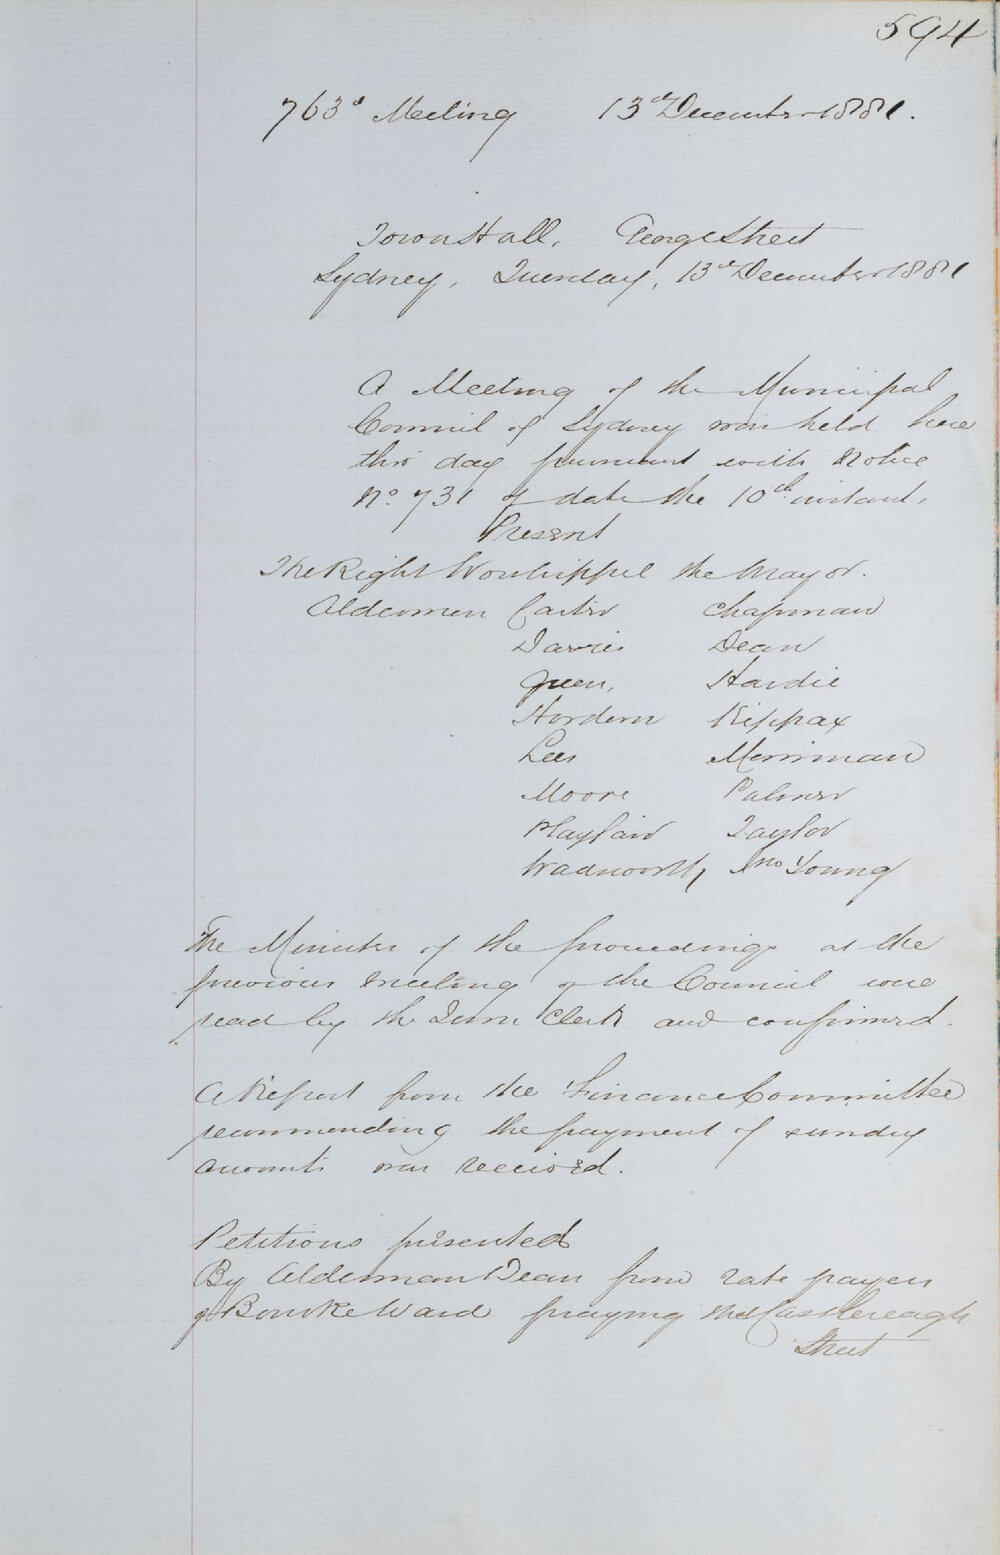 594
763d Meeting 13th December 1881.
Town Hall, George Street
Sydney, Tuesday, 13th December 1881
A Meeting of the Municipal
Council of Sydney was held here
this day pursuant with Notice
No. 731 of date the 10th instant.
Present
The Right Worshipful the Mayor.
Aldermen Carter Chapman
Davies Dean
Green, Hardie
Hordern Kippax
Lees Merriman
Moore Palmer
Playfair Taylor
Wadsworth, Jno Young
The Minutes of the proceedings at the
previous meeting of the Council were
read by the Town Clerk and confirmed.
A Report from the Finance Committee
recommending the payment of sundry
amounts was received.
Petitions presented
By Alderman Dean from rate payers
of Bourke Ward praying that Castlereagh
Street